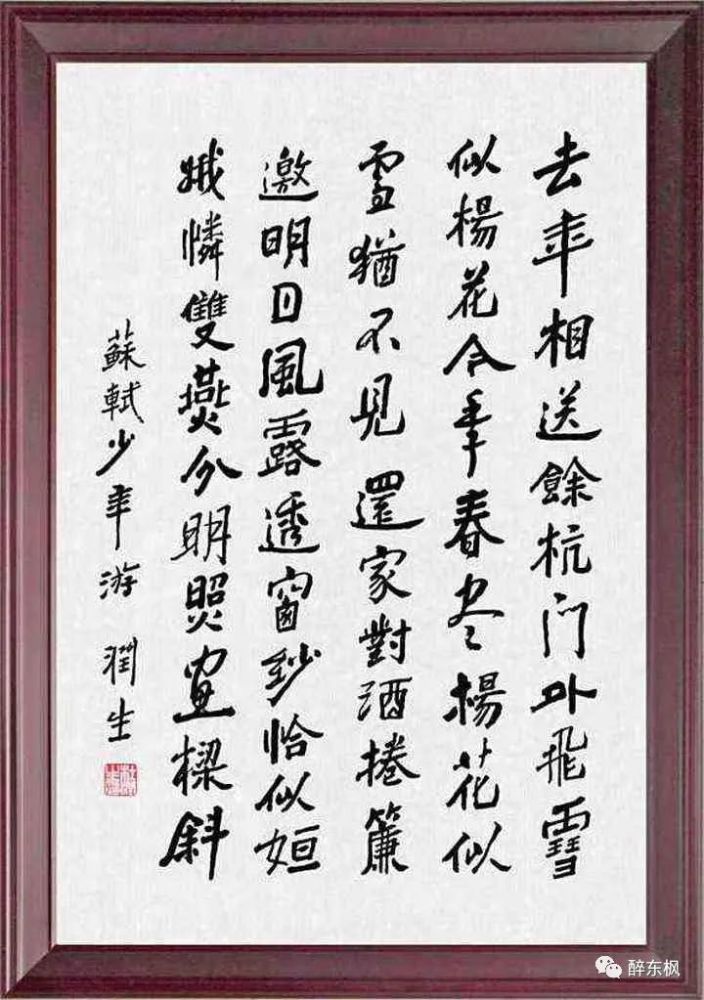 去年相送餘杭门外飛雪
似楊花今年春尽楊花似
雪猶不見還家對酒捲簾
邀明日風露透窗紗恰似姮
娥憐雙燕分明照画樑斜
蘇軾少年游 潤生
醉东枫